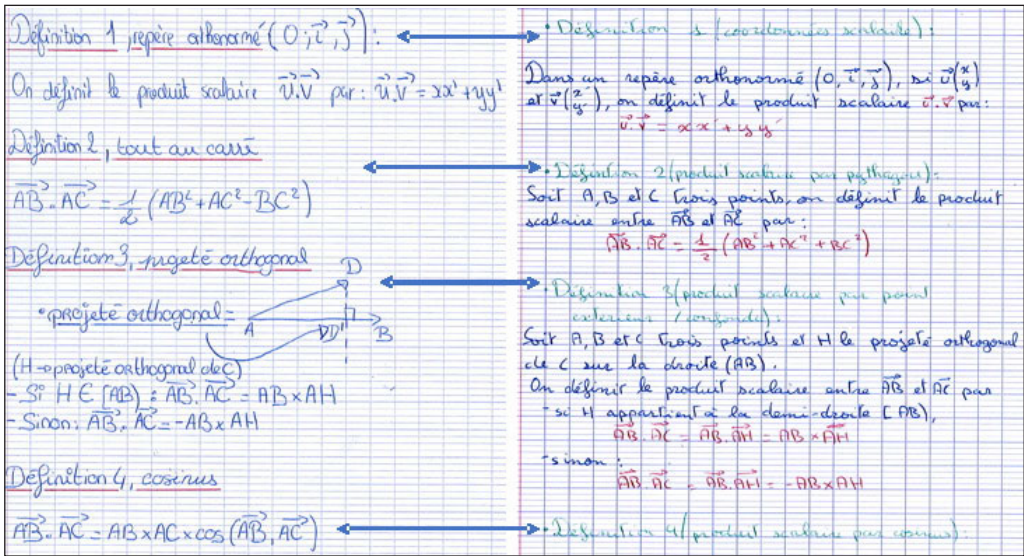 Définition 1, repère orthonormé (O; i⃗, j⃗):
On définit le produit scalaire u⃗.v⃗ par: u⃗.v⃗ = xx' + yy'
Définition 2, tout au carré
AB⃗. AC⃗ = 1/2 (AB² + AC² - BC²)
Définition 3, projeté orthogonal
• projeté orthogonal =
D
A
DD'
B
(H→projeté orthogonal de C)
- Si H ∈ [AB) : AB⃗. AC⃗ = AB × AH
- Sinon: AB⃗. AC⃗ = -AB × AH
Définition 4, cosinus
AB⃗. AC⃗ = AB × AC × cos (AB⃗, AC⃗)
• Définition 1 (coordonnées scalaire):
Dans un repère orthonormé (O, i⃗, j⃗), si u⃗(x y)
et v⃗(x' y'), on définit le produit scalaire u⃗.v⃗ par:
u⃗.v⃗ = xx' + yy'
• Définition 2 (produit scalaire par pythagore):
Soit A, B et C trois points, on définit le produit
scalaire entre AB⃗ et AC⃗ par:
AB⃗. AC⃗ = 1/2 (AB² + AC² + BC²)
• Définition 3 (produit scalaire par point
exterieur / confondu):
Soit A, B et C trois points et H le projeté orthogonal
de C sur la droite (AB).
On définir le produit scalaire entre AB⃗ et AC⃗ par
- si H appartient à la demi-droite [AB),
AB⃗. AC⃗ = AB⃗. AH⃗ = AB × AH⃗
- sinon :
AB⃗. AC⃗ = AB⃗. AH⃗ = - AB × AH
• Définition 4 (produit scalaire par cosinus):